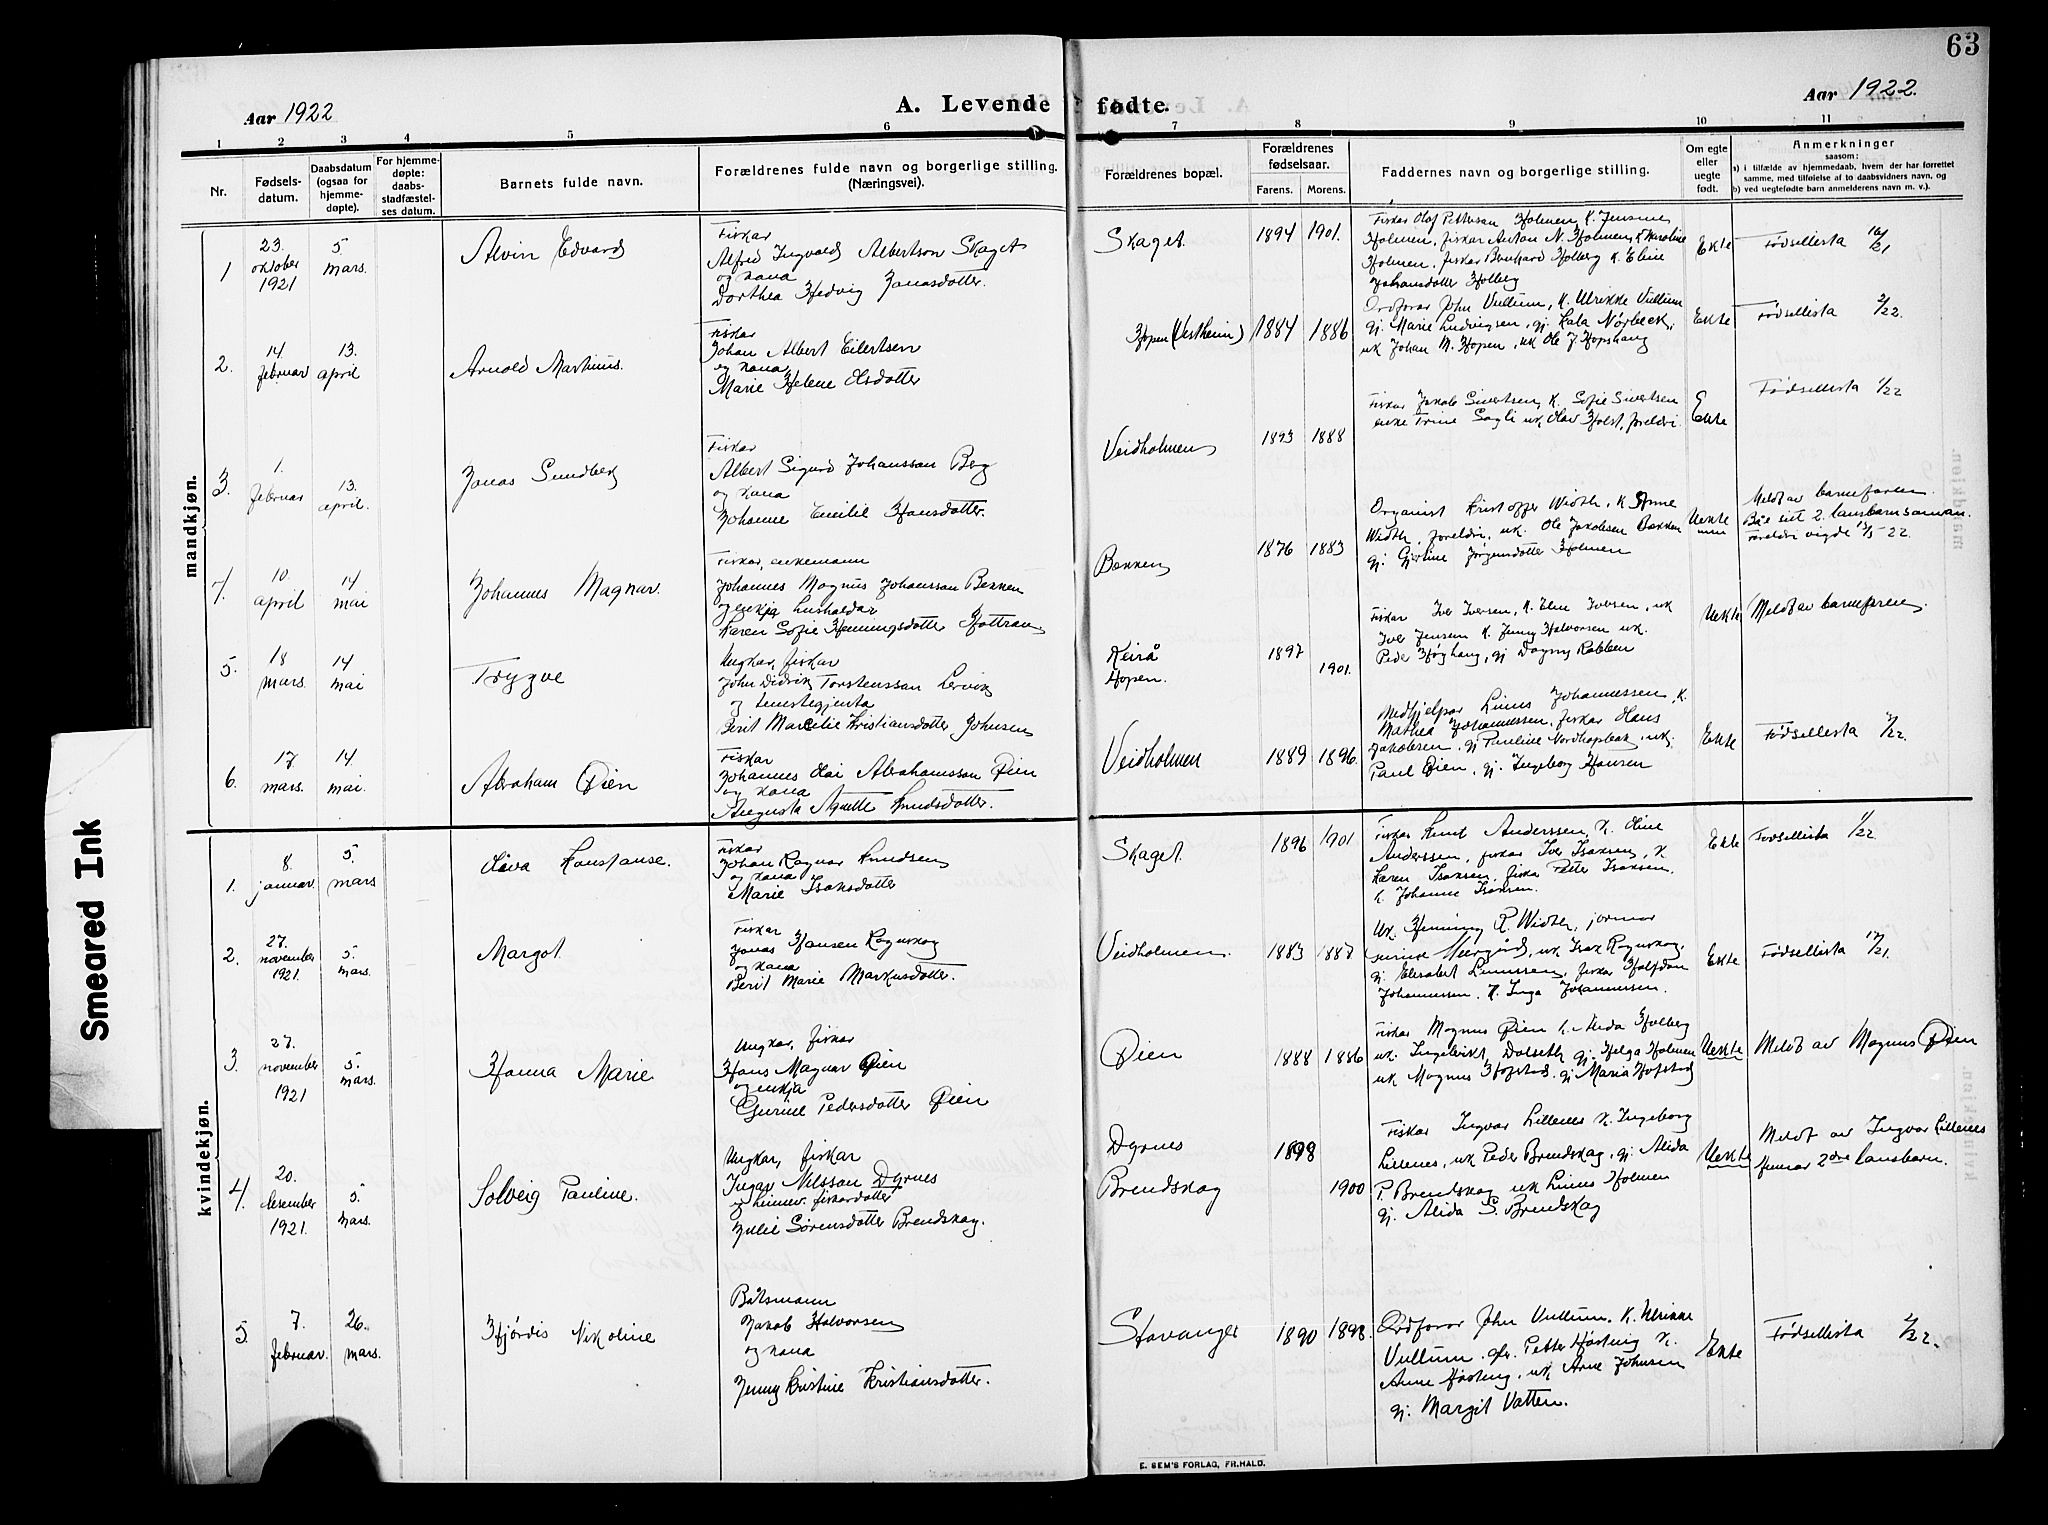 63
Aar 1922
A. Levende fødte.
Aar 1922.
1 2 3 4 5 6 7 8 9 10 11
Nr.
Fødsels-
datum.
Daabsdatum
(ogsaa for
hjemme-
døpte).
For hjemme-
døpte:
daabs-
stadfæstel-
ses datum.
Barnets fulde navn.
Forældrenes fulde navn og borgerlige stilling.
(Næringsvei).
Forældrenes bopæl.
Forældrenes
fødselsaar.
Farens. Morens.
Faddernes navn og borgerlige stilling.
Om egte
eller
uegte
født.
Anmerkninger
saasom:
a) i tilfælde av hjemmedaab, hvem der har forrettet
samme, med tilføielse af to daabsvidners navn, og
b) ved uegtefødte barn anmelderens navn m. v.).
mandkjøn.
1
23.
oktober
1921
5
mars.
Alvin Edvard
Fiskar
Alfred Ingvald Albertson Skaget
og kona
Dorthea Hedvig Jonasdotter.
Skaget.
1894 1901.
Fiskar Olaf Pettersen Holmen, K. Jensine
Holmen, fiskar Anton N. Holmen, K Karoline
Holmen, fiskar Bernhard Holberg K. Eline
Johansdotter Holberg
Ekte
Fødsellista 10/21
2.
14.
februar
13.
april
Arnold Martinus.
Fiskar
Johan Albert Eilertsen
og kona
Marie Helene Olsdotter
Hopen (Vestheim)
1884 1886
Ordførar John Vullum, K. Ulrikke Vullum
gj. Marie Ludvigsen, gj. Lala Nørbeck,
uk Johan M. Hopen, uk Ole J. Hopshaug
Ekte
Fødsellista 2/22.
3.
1.
februar
13.
april.
Jonas Sundberg
Fiskar
Albert Sigurd Johansson Berg
og kona
Johanne Emilie Hansdotter.
Veidholmen
1893 1888
Fiskar Jakob Sivertsen, K. Sofie Sivertsen
enke Trine Sagli uk Olav Holst, foreldri.
Ekte
Fødsellista 1/22
4.
10.
april
14
mai
Johannes Magnar.
Fiskar, enkemann
Johannes Magnus Johansson Bekken
og enkja hushaldar
Karen Sofie Henningsdotter Hottran
Bekken
1876 1883
Organist Kristoffer Width, K Anne
Width, foreldri, uk. Ole Jakobsen Bekken
gj. Gjertine Jørgensdotter Holmen
Uekte
Meldt av barnefaren.
Båe sitt 2. lausbarn saman.
Foreldri vigde 13/5-22.
5.
18
mars.
14
mai
Trygve
Ungkar, fiskar
John Didrik Torstensson Lervik
og tenestegjenta
Berit Marcelie Kristiansdotter Johnsen
Keirå
Hopen.
1897
1901.
Fiskar Iver Iversen, K. Elen Iversen, uk
Iver Jensen K. Jenny Halvorsen uk.
Peder Høghaug, gj Dagny Rabben
Uekte
Meldt av barnefaren.
6.
17
mars.
14.
mai.
Abraham Øien
Fiskar
Johannes Olai Abrahamsson Øien
og kona
Augusta Anette Knudsdotter.
Veidholmen
1889 1896.
Medhjelpar Linus Johannessen, K.
Mathea Johannessen, fiskar Hans
Jakobsen, gj Pauline Nordhopbak, uk.
Paul Øien, gj. Ingeborg Hansen
Ekte
Fødsellista 2/22.
kvindekjøn.
1.
8.
januar.
5.
mars
Olava Konstanse.
Fiskar
Johan Ragnar Knudsen
og kona
Marie Isaksdotter
Skaget.
1896 1901
Fiskar Knut Anderssen, K. Oline
Anderssen, fiskar Iver Isaksen, K
Karen Isaksen, fiskar Petter Isaksen.
K. Johanne Isaksen.
Ekte
Fødsellista 1/22.
2.
27.
november
1921.
5.
mars.
Margot.
Fiskar
Jonas Hansen Rognskog
og kona
Berit Marie Markusdotter.
Veidholmen.
1883 1887
Uk. Henning R. Width, jormor
uk Isak Rognskog.
gj. Elisabet Linussen, fiskar Halfdan
Johannessen. K. Inga Johannessen.
Ekte
Fødsellista 17/21.
3.
27.
november
1921
5.
mars.
Hanna Marie
Ungkar, fiskar
Hans Magnar Øien
og enkja
Gurine Pedersdotter Øien
Øien
1888 1886
Fiskar Magnus Øien K. Alida Holberg
uk. Ingebrikt Dalseth, gj. Helga Holmen
uk Magnus Hopstad, gj Maria Hopstad
Uekte
Meldt av Magnus Øien
4.
20.
desember
1921.
5
mars.
Solveig Pauline.
Ungkar, fiskar
Ingar Nilsson Dyrnes
og heimev. fiskardotter
Julie Sørensdotter Brendskag.
Dyrnes
Brendskag
1898
1900
Fiskar Ingvar Lillenes K. Ingeborg
Lillenes, uk Peder Brendskag, gj. Alida
P. Brendskag uk Linus Holmen
gj. Alida S. Brendskag
Uekte
Meldt av Ingvar Lillenes
hennar 2dre lausbarn.
5.
7.
februar.
26.
mars.
Hjørdis Nikoline
Båtsmann
Jakob Halvorsen
og kona
Jenny Kristine Kristiansdotter.
Stavanger
1890 1898.
Ordførar John Vullum. K. Ulrikke
Vullum. gbr. Petter Høsteng K.
Anne Høsteng, uk Arne Johnsen
gj. Margit Vatten.
Ekte
Fødsellista 2/22.
E. SEM'S FORLAG, FR.HALD.
Smeared Ink